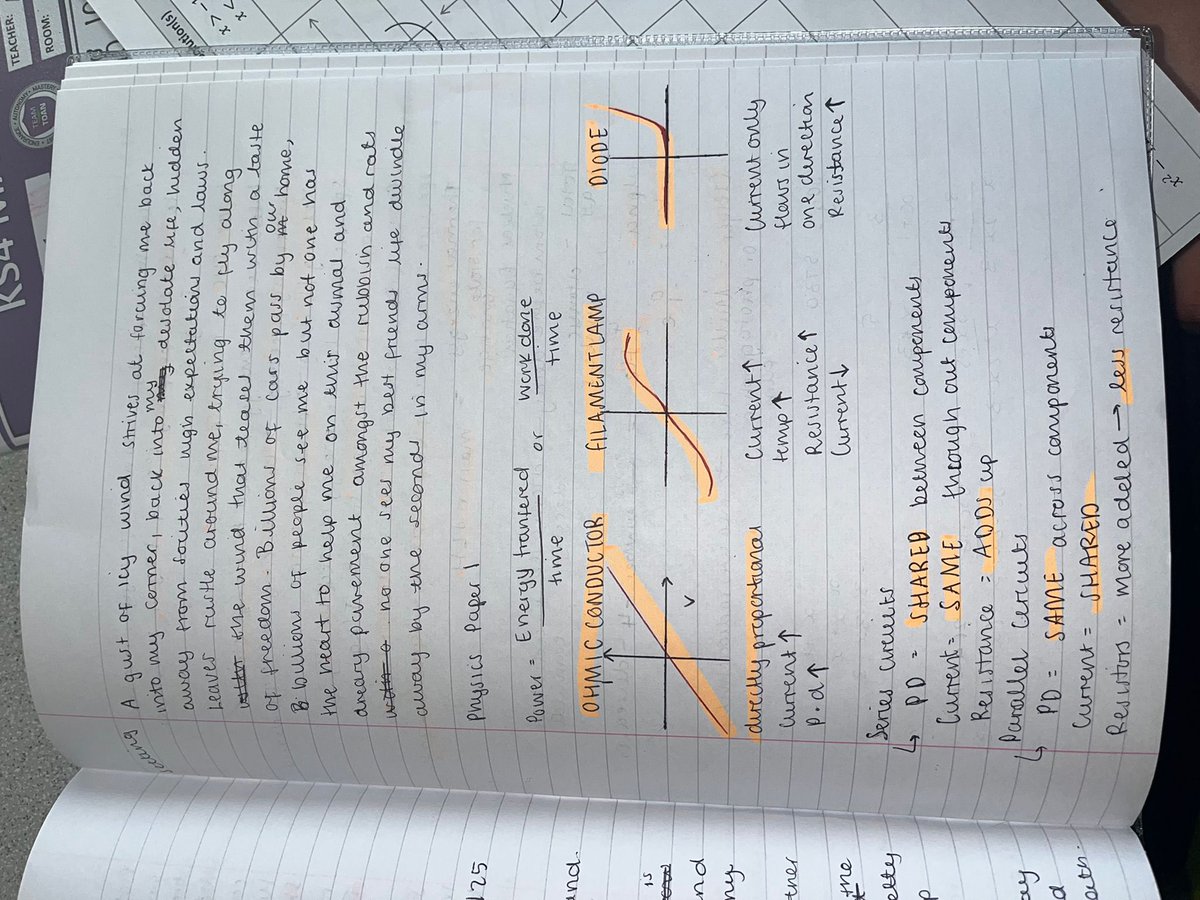 A gust of icy wind strives at forcing me back
into my corner, back into my desolate life, hidden
away from societies high expectations and laws.
Leaves rustle around me, trying to fly along
the wind that teases them with a taste
of freedom. Billions of cars pass by our home,
Billions of people see me but not one has
the heart to help me. on this dismal and
dreary pavement amongst the rubbish and rats
no one sees my best friends life dwindle
away by the second in my arms.
Physics Paper 1
Power = Energy tranfered / time or work done / time
OHYMIC CONDUCTOR
FILAMENT LAMP
DIODE
V
directly proportional
Current ↑
P.d ↑
Current ↑
temp ↑
Resistance ↑
Current ↓
Current only
flows in
one direction
Resistance ↑
Series circuits
↳ PD = SHARED between components
Current = SAME through out components
Resistance = ADDS up
Parallel circuits
↳ PD = SAME across components
Current = SHARED
Resistors = More added → less resistance
TEACHER:
ROOM:
TEAM
KS4 M
ution(s)
125
and.
is
nd
ny
ther
the
etty
p
ay
d
ath.